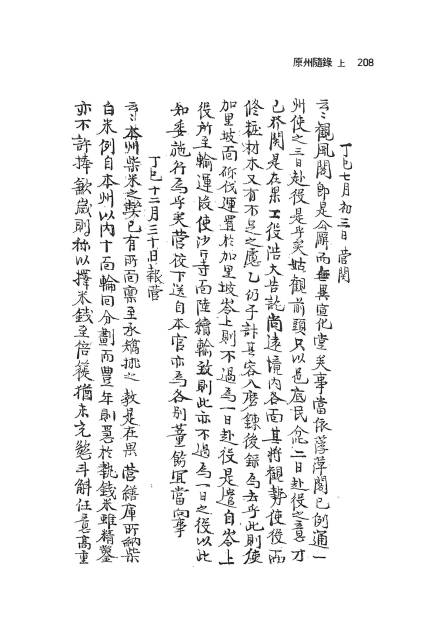 原州隨錄 上 208
丁巳七月初三日 營関
云〻觀風閣即是公廨而無異宣化堂矣事當依萍閣已例通一
州使之三日赴役是乎矣姑觀前頭只以邑底民念二日赴役之意才
已發関是在果工役浩大告訖尚遠境内各面其將觀勢使役而
修粧材木又有不足之慮乙仍于計其容入磨鍊後錄爲去乎此則使
加里坡面斫伐運置於加里坡岺上則不過爲一日赴役是遣自岺上
役所至輸運段使沙寺面陸續輸致則此亦不過爲一日之役以此
知委施行爲乎矣營校下送自本官亦爲各別董飭宜當向事
丁巳十二月三十日報營
云〻本州柴米之弊已有所面稟至承矯捄之教是在果營繕庫所納柴
白米例自本州以内十面輪回分劃而豊年則於執錢米雖精鑿
亦不許捧歉歲則称以擇米錢至倍蓰猶未充慾斗斛任意高重